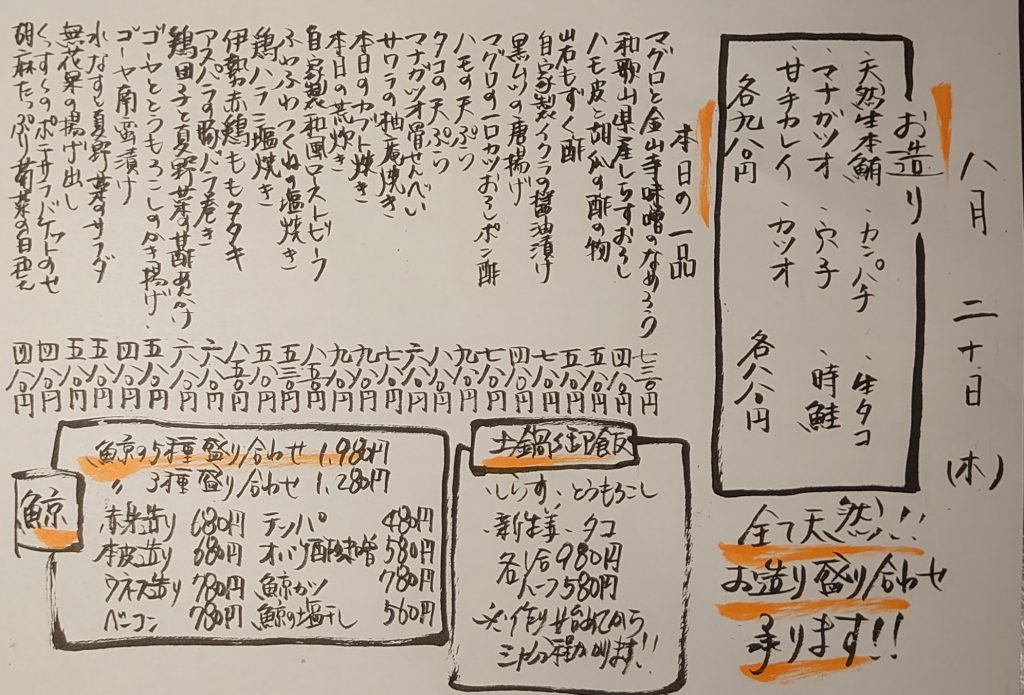 八月 二十日 (木)
お造り
・天然生本鮪 ・カンパチ ・生タコ
・マナガツオ ・穴子 ・時鮭
・甘手カレイ ・カツオ
各九八〇円 各八八〇円
全て天然!!
お造り盛り合わせ
承ります!!
本日の一品
マグロと金山寺味噌のなめろう 七三〇円
和歌山県産しらすおろし 四八〇円
ハモ皮と胡瓜の酢の物 五八〇円
岩もずく酢 五八〇円
自家製イクラの醤油漬け 七八〇円
黒ムツの唐揚げ
マグロの一口カツおろしポン酢
ハモの天ぷら
タコの天ぷら
マナガツオ骨せんべい
サワラの柚庵焼き
本日のカブト焼き
本日の煮炊き
自家製和風ローストビーフ
ふわふわつくねの塩焼き
鶏ハラミ塩焼き
伊勢赤鶏ももタタキ
アスパラの豚バラ巻き
鶏団子と夏野菜の甘酢あんかけ 六八〇円
ゴーヤととうもろこしのかき揚げ 五八〇円
ゴーヤ南蛮漬け 四八〇円
水なすと夏野菜のサラダ 五八〇円
無花果の揚げ出し 五八〇円
くんすモのポテサラバゲットのせ 四八〇円
胡麻たっぷり菊菜の白和え 四八〇円
土鍋御飯
しらす、とうもろこし
新生姜、タコ
各1合 980円
ハーフ580円
※作り始めてから
三十分程かかります!!
鯨
鯨の5種盛り合わせ 1,980円
〃 3種盛り合わせ 1,280円
赤身造り 680円 テッパ 480円
本皮造り 680円 オバケ酢味噌 580円
ウネス造り 780円 鯨カツ 780円
ベーコン 780円 鯨の塩干し 560円